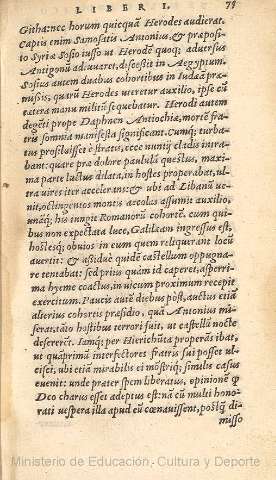 LIBER I. 78
Githa: nec horum quicquã Herodes audierat.
Captis enim Samosatis Antonius & præposi-
to Syriæ Sosio iusso ut Herodē quoq; aduersus
Antigonũ adiuuaret, discessit in Aegyptum.
Sosius autem duabus cohortibus in Iudæã præ-
missis, quarũ Herodes uteretur auxilio, ipse cũ
cætera manu militũ sequebatur. Herodi autem
degēti prope Daphnen Antiochiæ, mortē fra-
tris somnia manifesta significant. Cumq; turba-
tus prosiluisset è stratis, ecce nuncij cladis intra-
bant: quare præ dolore paululũ questus, maxi-
ma parte luctus dilata, in hostes properabat, ul-
tra uires iter accelerans: & ubi ad Libanũ ue-
nit, octingentos montis accolas assumit auxilio,
unãq; his iungit Romanorũ cohortē. cum qui-
bus non expectata luce, Galilæam ingressus est,
hostesq; obuios in eum quem reliquerant locũ
auertit: & assiduè quidē castellum oppugna-
re tentabat: sed prius quàm id caperet, asperri-
ma hyeme coactus, in uicum proximum recepit
exercitum. Paucis autē diebus pòst, auctus etiã
alterius cohortis præsidio, quã Antonius mi-
serat, tãto hostibus terrori fuit, ut castellũ nocte
desererēt. Iamq; per Hierichũta properãs ibat,
ut quàmprimũ interfectores fratris sui posset ul-
cisci, ubi etiã mirabilis ei mōstriq; similis casus
euenit: unde præter spem liberatus, opinionē ꝗ
Deo charus esset adeptus est: nã cũ multi hono-
rati uespera illa apud eũ cœnauissent, postq̃ di-
misso
Ministerio de Educación, Cultura y Deporte